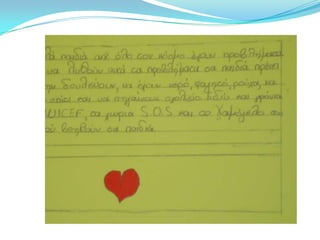 λα παιδιά απ' όλο τον κόσμο έχουν προβλήματα
να λυθούν αυτά τα προβλήματα τα παιδιά πρέπει
την δουλεύουν, να έχουν νερό, φαγητό, ρούχα, να
και να πηγαίνουν σχολείο και
UNICEF, τα χωριά S.O.S και το Χαμόγελο του
ού βοηθούν τα παιδιά.